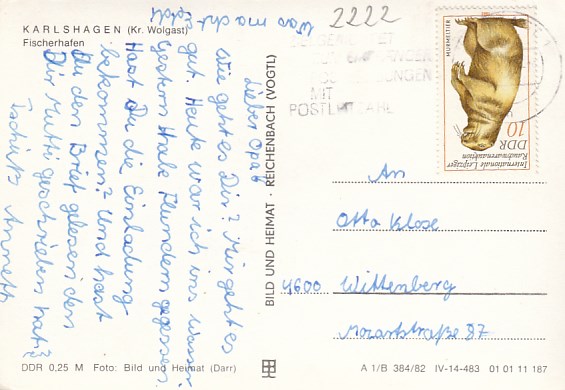 KARLSHAGEN (Kr. Wolgast)
Fischerhafen
Lieber Opa!
Wie geht es Dir? Mir geht es
gut. Heute war ich ins Wasser.
Gestern Habe Flundern gegessen.
Hast Du die Einladung
bekommen? Und hast
Du den Brief gelesen den
Dir Mutti geschrieben hat?
Tschüß Annett
Was macht
BILD UND HEIMAT · REICHENBACH (VOGTL)
2222
MIT
POSTLEITZAHL
MURMELTIER
10
DDR
Internationale Leipziger
Rauchwarenauktion
An
Otto Klose
4600 Wittenberg
Mozartstraße 87
DDR 0,25 M Foto: Bild und Heimat (Darr)
A 1/B 384/82 IV-14-483 01 01 11 187